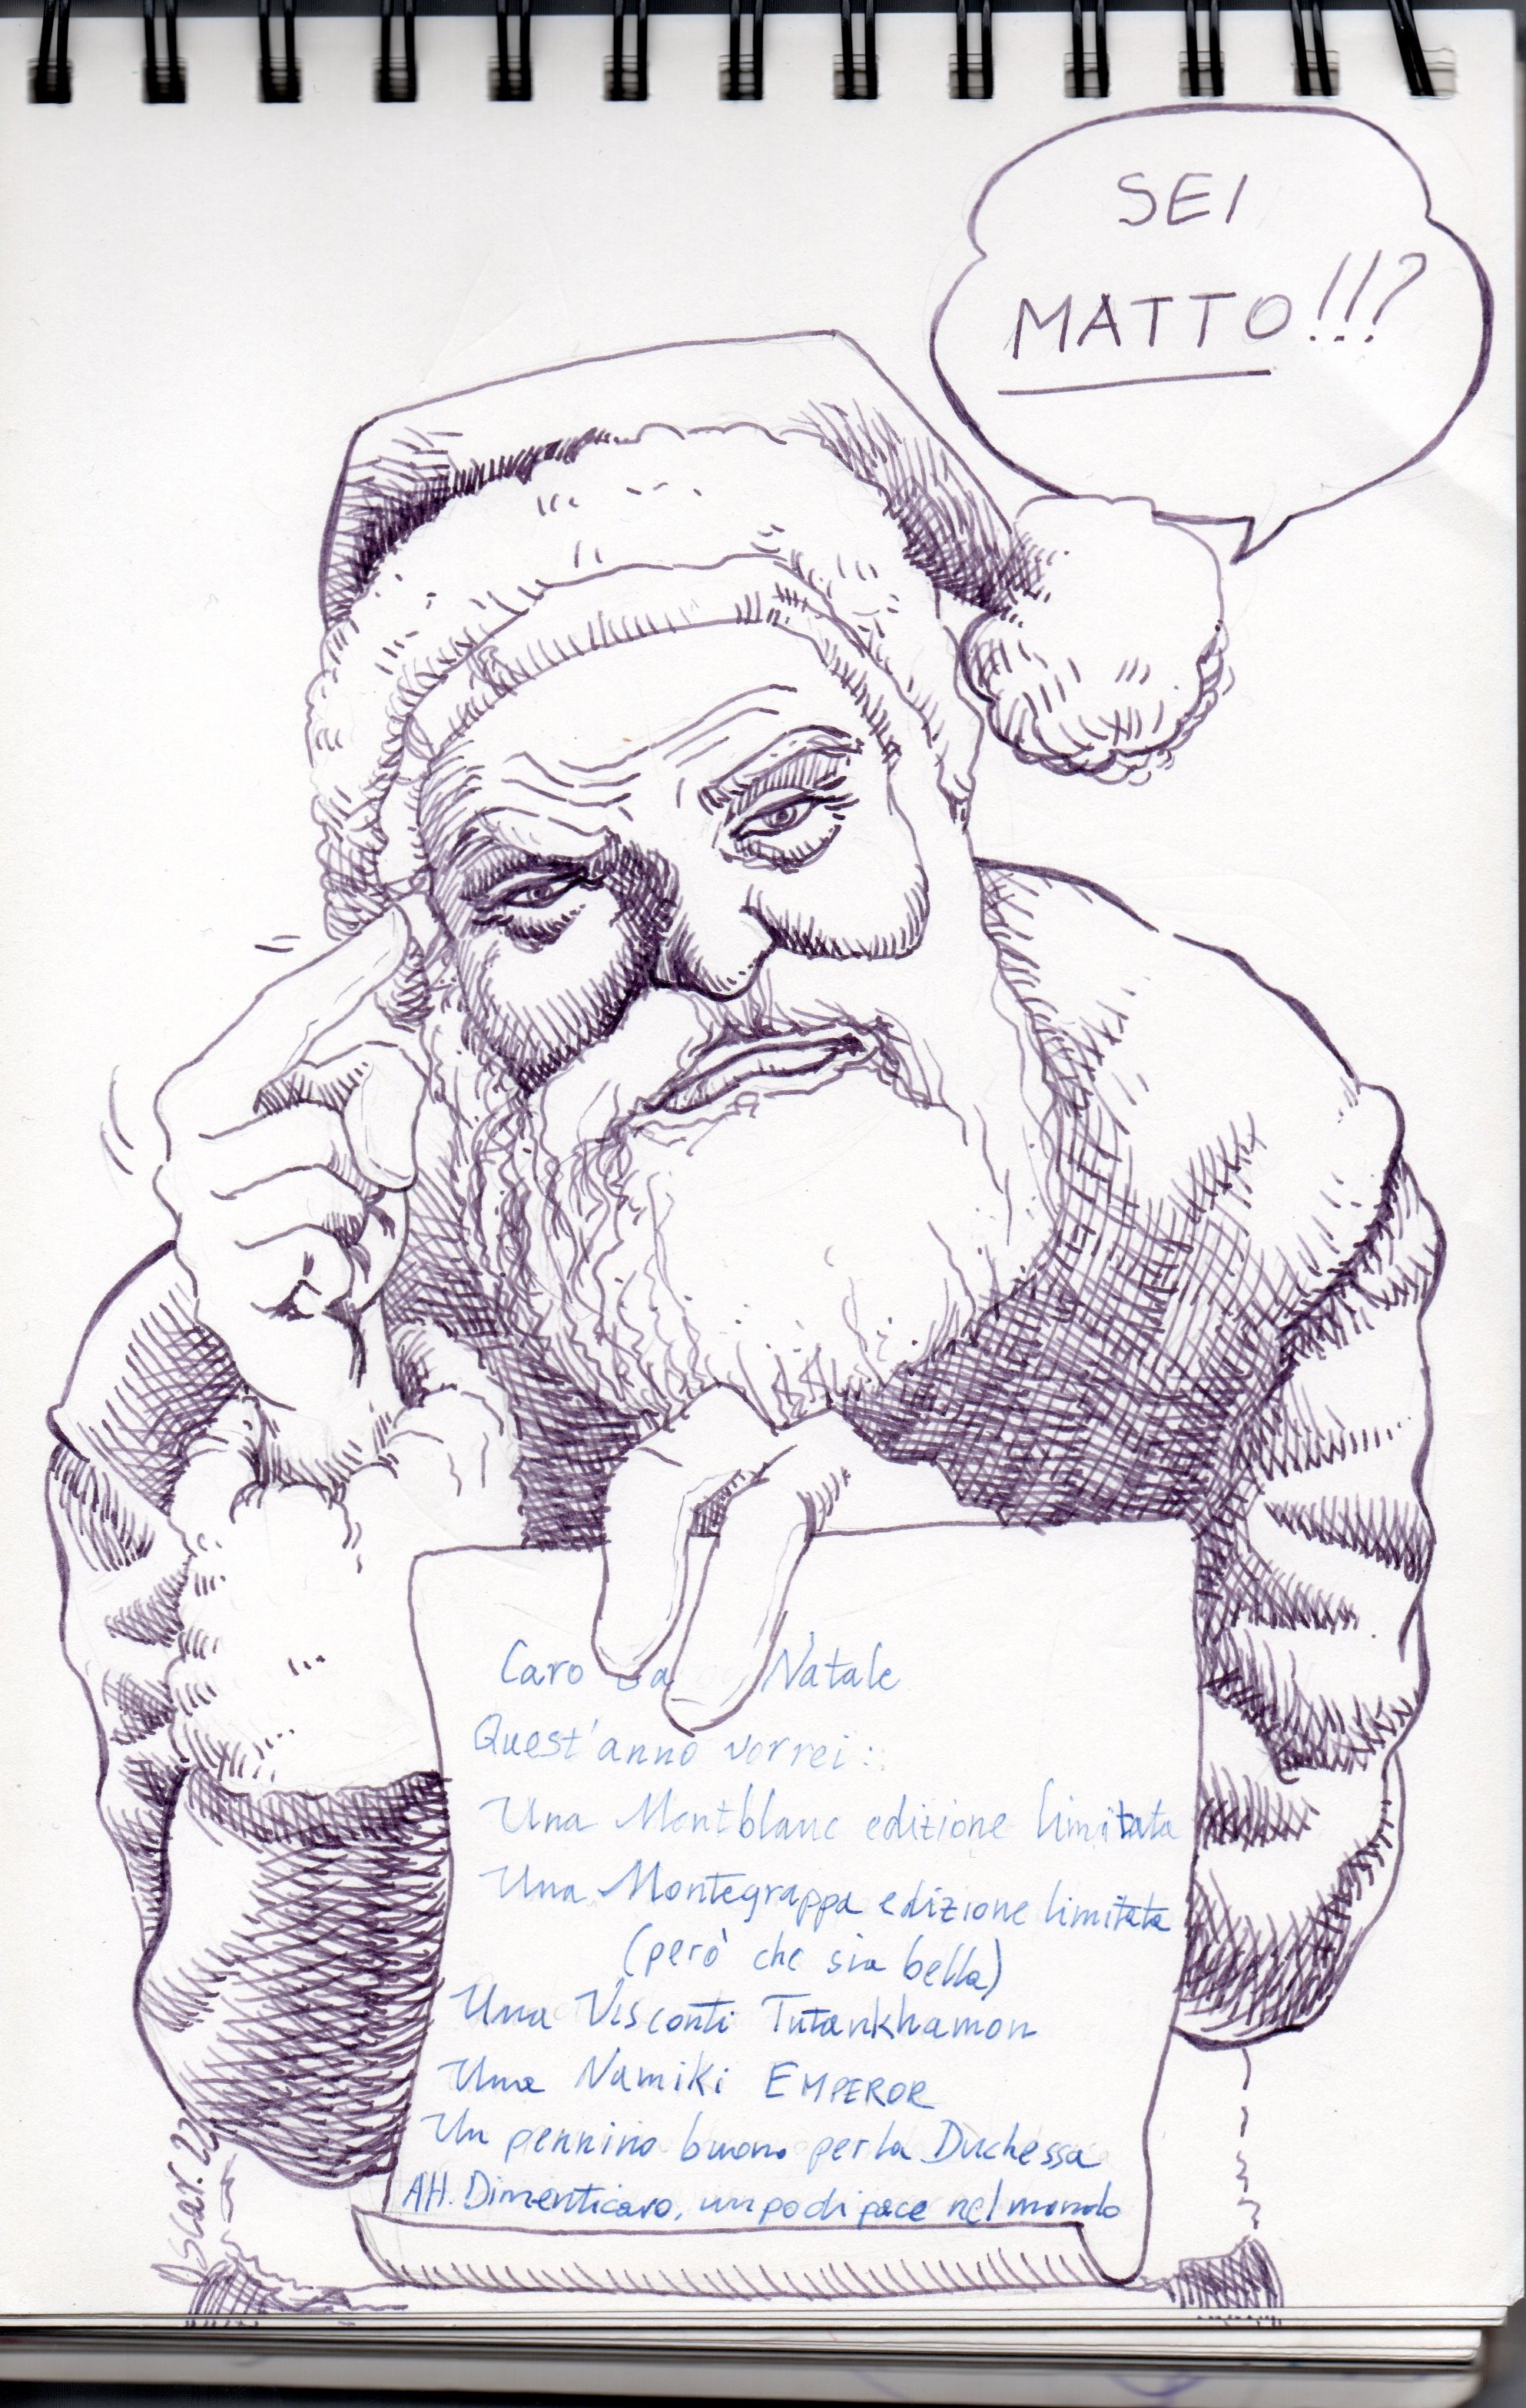 SEI
MATTO!!!?
Caro Ba Natale
Quest'anno vorrei:
Una Montblanc edizione limitata
Una Montegrappa edizione limitata
(però che sia bella)
Una Visconti Tutankhamon
Una Namiki EMPEROR
Un pennino buono per la Duchessa
AH. Dimenticavo, un po di pace nel mondo
Oscar. 22